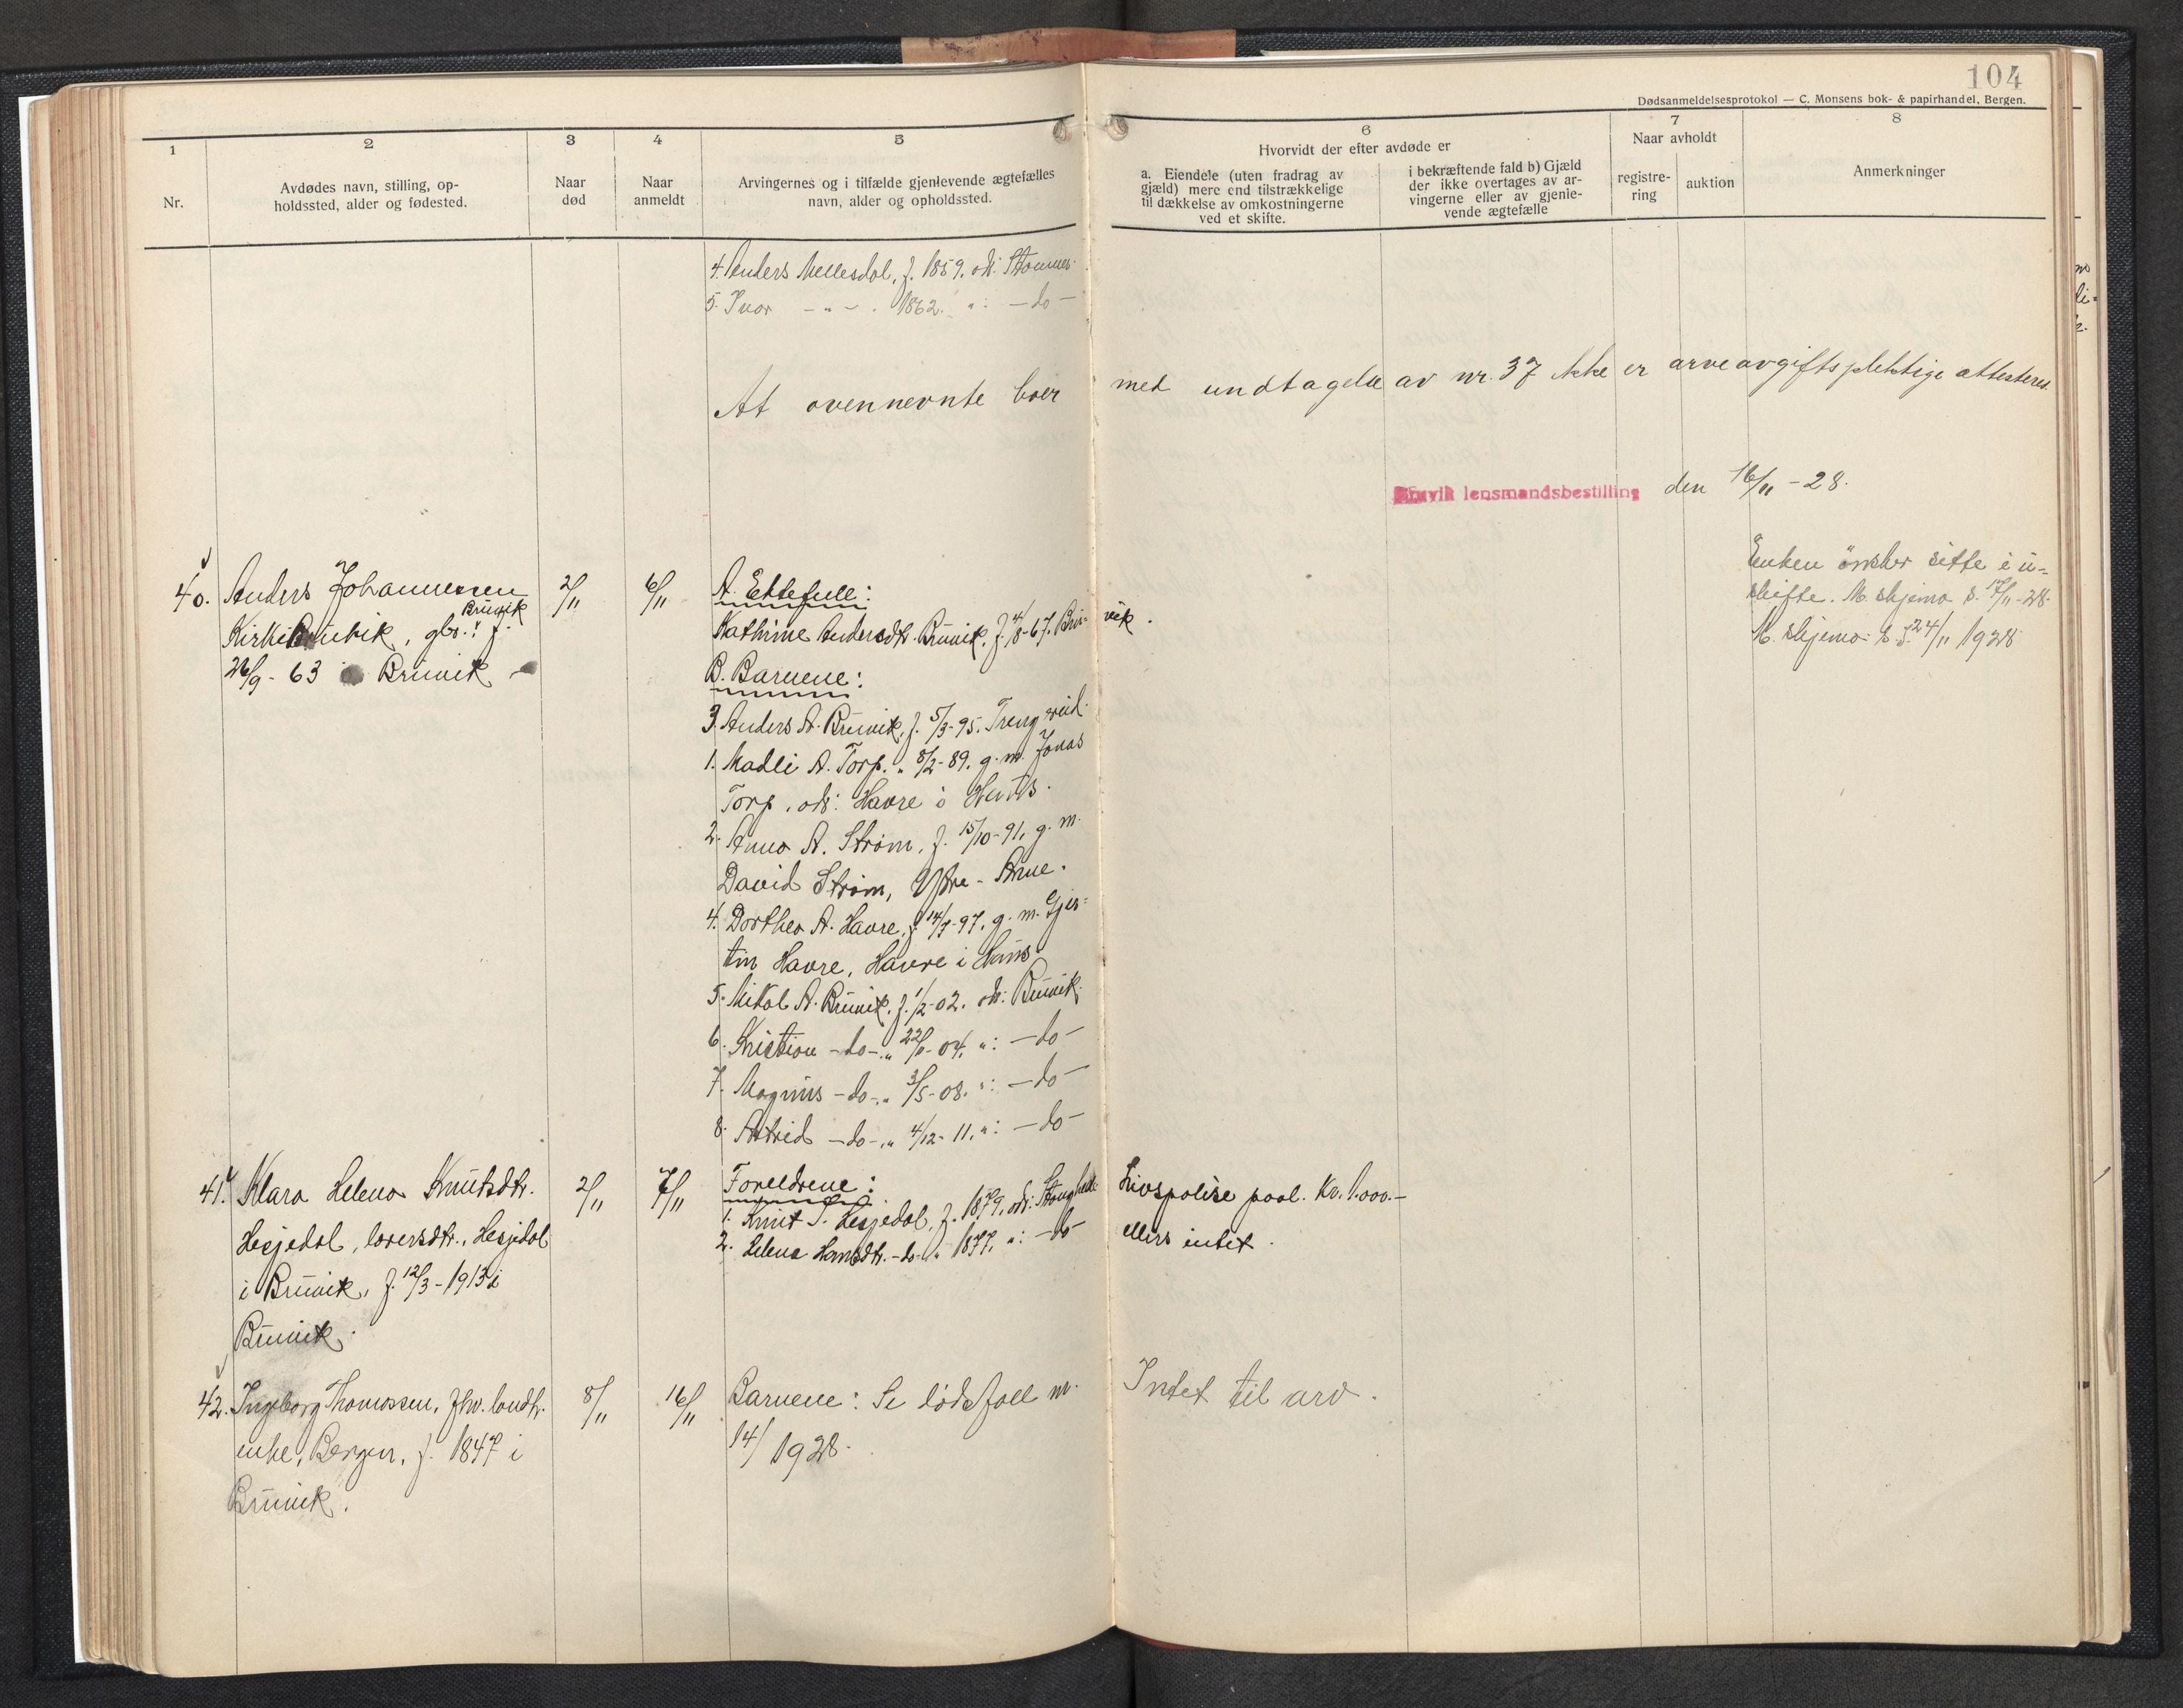 104
Dødsanmeldelsesprotokol — C. Monsens bok- & papirhandel, Bergen.
1
Nr.
2
Avdødes navn, stilling, op-
holdssted, alder og fødested.
3
Naar
død
4
Naar
anmeldt
5
Arvingernes og i tilfælde gjenlevende ægtefælles
navn, alder og opholdssted.
6
Hvorvidt der efter avdøde er
a. Eiendele (uten fradrag av
gjæld) mere end tilstrækkelige
til dækkelse av omkostningerne
ved et skifte.
i bekræftende fald b) Gjæld
der ikke overtages av ar-
vingerne eller av gjenle-
vende ægtefælle
7
Naar avholdt
registre-
ring
auktion
8
Anmerkninger
4. Anders Mellesdal, f. 1859. ods:
5. Ivar - " - . 1862. ": - do -
At ovennevnte boer med undtagelse av nr. 37 ikke er arveavgiftspliktige attesteres.
lensmandsbestilling den 16/11 - 28.
40. Anders Johannessen 2/11 6/11
Bruvik
Kirke Bruvik, gbr. f.
26/9 - 63 i Bruvik
A. Ektefelle:
Kathrine Andersdtr. Bruvik, f. 4/8-67. Bru-vik.
B. Barnene:
3. Anders A. Bruvik, f. 5/3-95. Trengereid.
1. Madli A. Torp. " 8/2-89. g. m. Jonas
Torp, ods: Havre i Haus.
2. Anna A. Strøm, f. 15/10-91, g. m.
David Strøm, Ytre-Arne.
4. Dorthea A. Havre, f. 14/7-97. g. m. Gjer-
tin Havre, Havre i Haus.
5. Mikal A. Bruvik, f. 1/2-02. ods: Bruvik.
6. Kristian -do-. " -04. ": -do-
7. Magnus -do-. " 3/5-08. ": -do-
8. Astrid -do-. " 4/12-11. ": -do-
Enken ønsker sitte i u-
skifte. M. skjema d. 17/11-28.
M. skjema 24/11 1928
41. Klara Helena Knutsdtr. 2/11 7/11
Hesjedal, Hesjedal
i Bruvik, f. 12/3-1913 i
Bruvik.
Foreldrene:
1. Knut Hesjedal, f. 1879, ods:
2. Helena Hansdtr. -do- " 1877. ": -do-
Livspolise paal. Kr. 1.000.-
ellers intet.
42. Ingeborg Thomassen, fhv. 8/11 16/11
enke, Bergen, f. 1847 i
Bruvik.
Barnene: Se dødsfall nr.
14/1928.
Intet til arv.